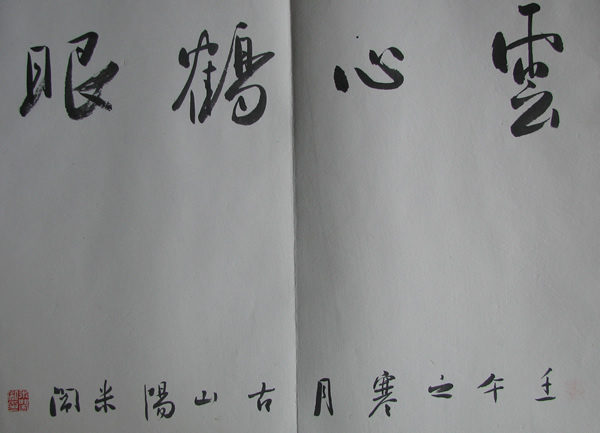 雲心鶴眼
壬午之寒月古山陽米閙